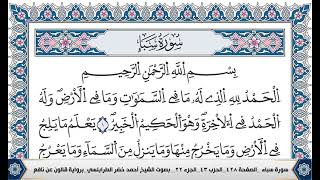 سورة سبإ
بِسْمِ اللَّهِ الرَّحْمَٰنِ الرَّحِيمِ
الْحَمْدُ لِلَّهِ الَّذِي لَهُ مَا فِي السَّمَٰوَٰتِ وَمَا فِي الْأَرْضِ وَلَهُ
الْحَمْدُ فِي الْأَخِرَةِ وَهُوَ الْحَكِيمُ الْخَبِيرُ ١ يَعْلَمُ مَا يَلِجُ
فِي الْأَرْضِ وَمَا يَخْرُجُ مِنْهَا وَمَا يَنزِلُ مِنَ السَّمَاءِ وَمَا يَعْرُجُ
سورة سباء . الصفحة ٤٢٨ . الحزب ٤٣ . الجزء ٢٢ . بصوت الشيخ أحمد خضر الطرابلسي . برواية قالون عن نافع